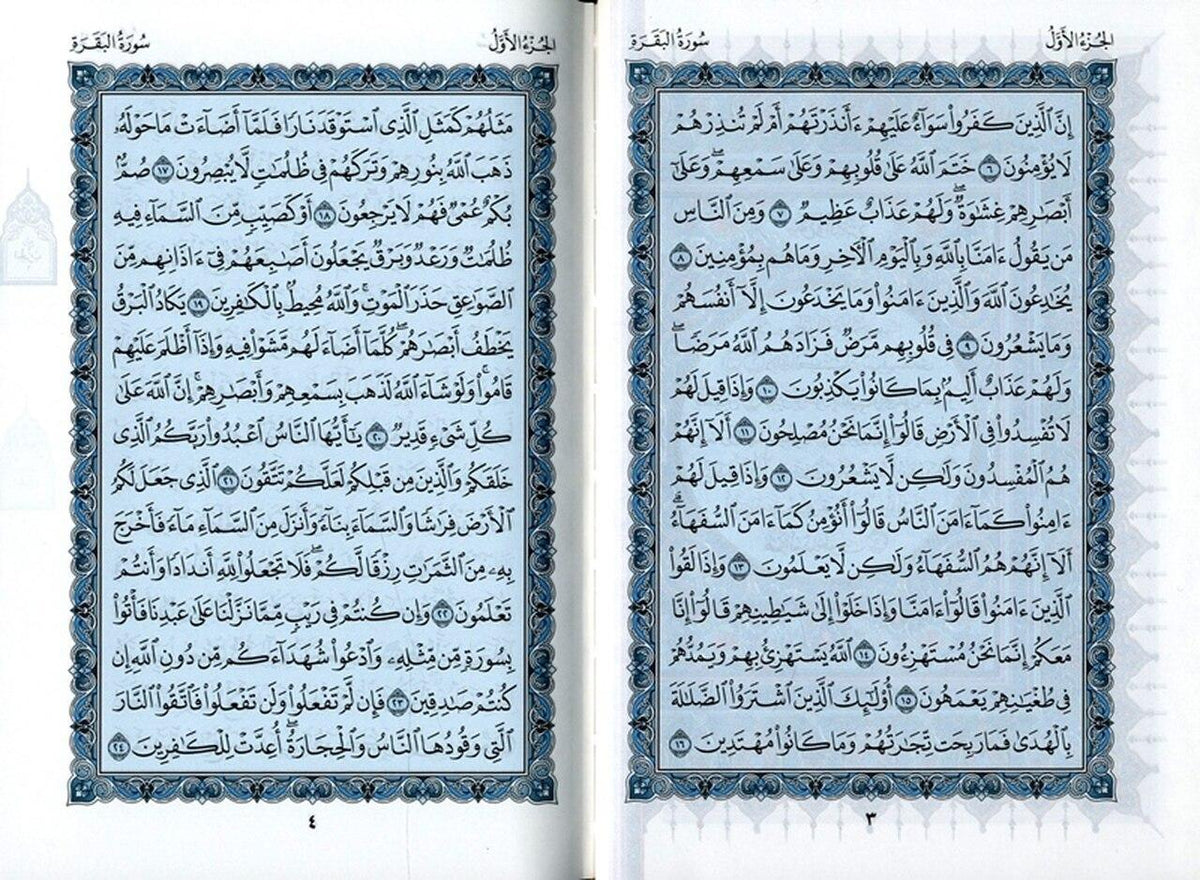 الجُزْءُ الأَوَّلُ
سُورَةُ البَقَرَةِ
إِنَّ ٱلَّذِينَ كَفَرُوا۟ سَوَآءٌ عَلَيْهِمْ ءَأَنذَرْتَهُمْ أَمْ لَمْ تُنذِرْهُمْ
لَا يُؤْمِنُونَ ٦ خَتَمَ ٱللَّهُ عَلَىٰ قُلُوبِهِمْ وَعَلَىٰ سَمْعِهِمْ ۖ وَعَلَىٰٓ
أَبْصَـٰرِهِمْ غِشَـٰوَةٌ ۖ وَلَهُمْ عَذَابٌ عَظِيمٌ ٧ وَمِنَ ٱلنَّاسِ
مَن يَقُولُ ءَامَنَّا بِٱللَّهِ وَبِٱلْيَوْمِ ٱلْـَٔاخِرِ وَمَا هُم بِمُؤْمِنِينَ ٨
يُخَـٰدِعُونَ ٱللَّهَ وَٱلَّذِينَ ءَامَنُوا۟ وَمَا يَخْدَعُونَ إِلَّآ أَنفُسَهُمْ
وَمَا يَشْعُرُونَ ٩ فِى قُلُوبِهِم مَّرَضٌ فَزَادَهُمُ ٱللَّهُ مَرَضًا ۖ
وَلَهُمْ عَذَابٌ أَلِيمٌۢ بِمَا كَانُوا۟ يَكْذِبُونَ ١٠ وَإِذَا قِيلَ لَهُمْ
لَا تُفْسِدُوا۟ فِى ٱلْأَرْضِ قَالُوٓا۟ إِنَّمَا نَحْنُ مُصْلِحُونَ ١١ أَلَآ إِنَّهُمْ
هُمُ ٱلْمُفْسِدُونَ وَلَـٰكِن لَّا يَشْعُرُونَ ١٢ وَإِذَا قِيلَ لَهُمْ
ءَامِنُوا۟ كَمَآ ءَامَنَ ٱلنَّاسُ قَالُوٓا۟ أَنُؤْمِنُ كَمَآ ءَامَنَ ٱلسُّفَهَآءُ ۗ
أَلَآ إِنَّهُمْ هُمُ ٱلسُّفَهَآءُ وَلَـٰكِن لَّا يَعْلَمُونَ ١٣ وَإِذَا لَقُوا۟
ٱلَّذِينَ ءَامَنُوا۟ قَالُوٓا۟ ءَامَنَّا وَإِذَا خَلَوْا۟ إِلَىٰ شَيَـٰطِينِهِمْ قَالُوٓا۟ إِنَّا
مَعَكُمْ إِنَّمَا نَحْنُ مُسْتَهْزِءُونَ ١٤ ٱللَّهُ يَسْتَهْزِئُ بِهِمْ وَيَمُدُّهُمْ
فِى طُغْيَـٰنِهِمْ يَعْمَهُونَ ١٥ أُو۟لَـٰٓئِكَ ٱلَّذِينَ ٱشْتَرَوُا۟ ٱلضَّلَـٰلَةَ
بِٱلْهُدَىٰ فَمَا رَبِحَت تِّجَـٰرَتُهُمْ وَمَا كَانُوا۟ مُهْتَدِينَ ١٦
٣
الجُزْءُ الأَوَّلُ
سُورَةُ البَقَرَةِ
مَثَلُهُمْ كَمَثَلِ ٱلَّذِى ٱسْتَوْقَدَ نَارًا فَلَمَّآ أَضَآءَتْ مَا حَوْلَهُۥ
ذَهَبَ ٱللَّهُ بِنُورِهِمْ وَتَرَكَهُمْ فِى ظُلُمَـٰتٍ لَّا يُبْصِرُونَ ١٧ صُمٌّۢ
بُكْمٌ عُمْىٌ فَهُمْ لَا يَرْجِعُونَ ١٨ أَوْ كَصَيِّبٍ مِّنَ ٱلسَّمَآءِ فِيهِ
ظُلُمَـٰتٌ وَرَعْدٌ وَبَرْقٌ يَجْعَلُونَ أَصَـٰبِعَهُمْ فِىٓ ءَاذَانِهِم مِّنَ
ٱلصَّوَٰعِقِ حَذَرَ ٱلْمَوْتِ ۚ وَٱللَّهُ مُحِيطٌۢ بِٱلْكَـٰفِرِينَ ١٩ يَكَادُ ٱلْبَرْقُ
يَخْطَفُ أَبْصَـٰرَهُمْ ۖ كُلَّمَآ أَضَآءَ لَهُم مَّشَوْا۟ فِيهِ وَإِذَآ أَظْلَمَ عَلَيْهِمْ
قَامُوا۟ ۚ وَلَوْ شَآءَ ٱللَّهُ لَذَهَبَ بِسَمْعِهِمْ وَأَبْصَـٰرِهِمْ ۚ إِنَّ ٱللَّهَ عَلَىٰ
كُلِّ شَىْءٍ قَدِيرٌ ٢٠ يَـٰٓأَيُّهَا ٱلنَّاسُ ٱعْبُدُوا۟ رَبَّكُمُ ٱلَّذِى
خَلَقَكُمْ وَٱلَّذِينَ مِن قَبْلِكُمْ لَعَلَّكُمْ تَتَّقُونَ ٢١ ٱلَّذِى جَعَلَ لَكُمُ
ٱلْأَرْضَ فِرَٰشًا وَٱلسَّمَآءَ بِنَآءً وَأَنزَلَ مِنَ ٱلسَّمَآءِ مَآءً فَأَخْرَجَ
بِهِۦ مِنَ ٱلثَّمَرَٰتِ رِزْقًا لَّكُمْ ۖ فَلَا تَجْعَلُوا۟ لِلَّهِ أَندَادًا وَأَنتُمْ
تَعْلَمُونَ ٢٢ وَإِن كُنتُمْ فِى رَيْبٍ مِّمَّا نَزَّلْنَا عَلَىٰ عَبْدِنَا فَأْتُوا۟
بِسُورَةٍ مِّن مِّثْلِهِۦ وَٱدْعُوا۟ شُهَدَآءَكُم مِّن دُونِ ٱللَّهِ إِن
كُنتُمْ صَـٰدِقِينَ ٢٣ فَإِن لَّمْ تَفْعَلُوا۟ وَلَن تَفْعَلُوا۟ فَٱتَّقُوا۟ ٱلنَّارَ
ٱلَّتِى وَقُودُهَا ٱلنَّاسُ وَٱلْحِجَارَةُ ۖ أُعِدَّتْ لِلْكَـٰفِرِينَ ٢٤
٤